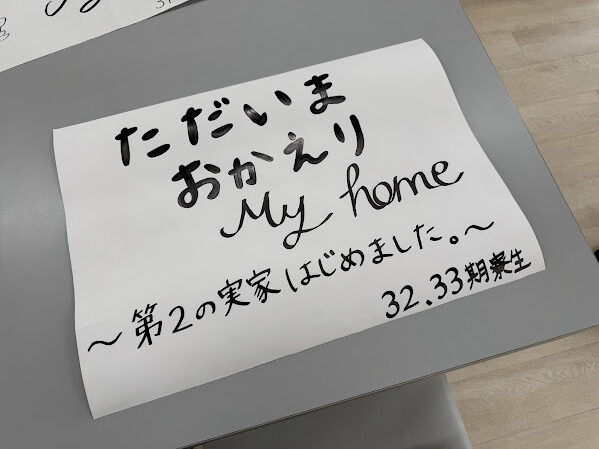 ただいま
おかえり
My home
～第2の実家はじめました。～
32.33期寮生